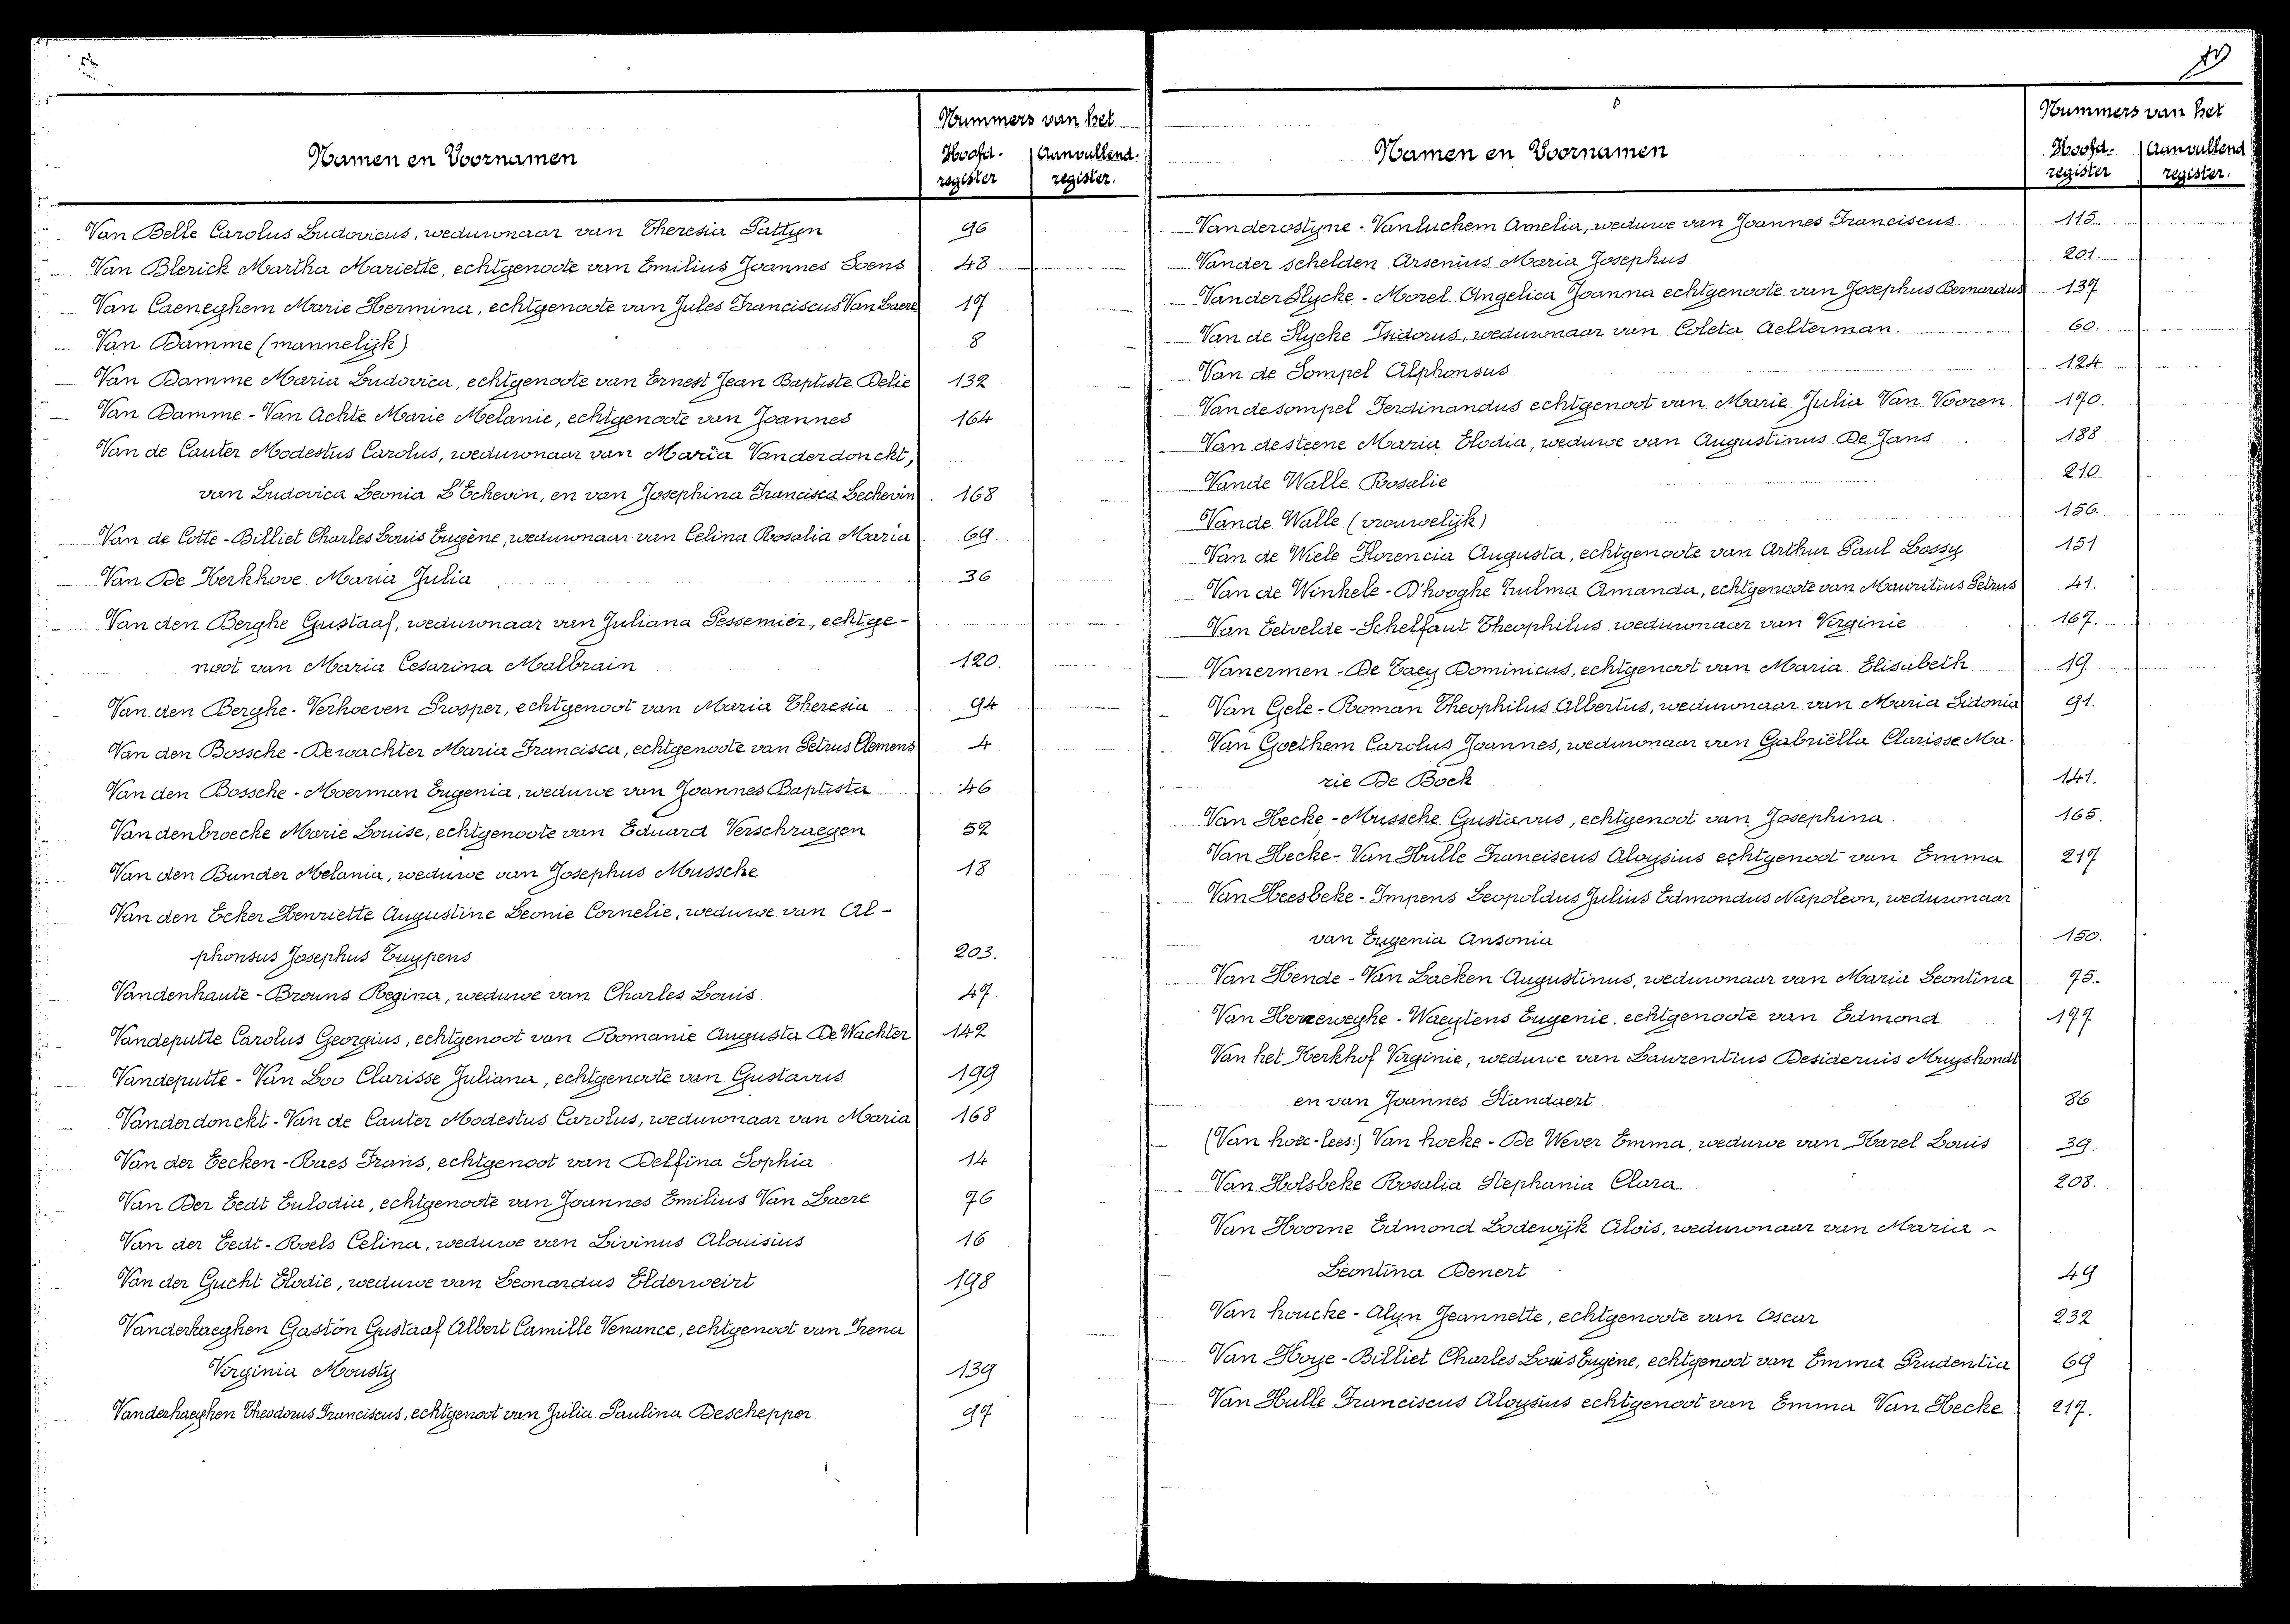 Nummers van het
Namen en Voornamen
Hoofd-register
Aanvullend-register.
Van Belle Carolus Ludovicus, weduwnaar van Theresia Pattyn 96
Van Blerick Martha Mariette, echtgenoote van Emilius Joannes Soens 48
Van Caeneghem Marie Hermina, echtgenoote van Jules Franciscus Van Laere 17
Van Damme (mannelijk) 8
Van Damme Maria Ludovica, echtgenoote van Ernest Jean Baptiste Delie 132
Van Damme - Van Achte Marie Melanie, echtgenoote van Joannes 164
Van de Cauter Modestus Carolus, weduwnaar van Maria Vanderdonckt,
van Ludovica Leonia L'Echevin, en van Josephina Francisca Lechevin 168
Van de Cotte - Billiet Charles Louis Eugène, weduwnaar van Celina Rosalia Maria 69.
Van De Kerkhove Maria Julia 36
Van den Berghe Gustaaf, weduwnaar van Juliana Pessemier, echtge-
noot van Maria Cesarina Malbrain 120.
Van den Berghe - Verhoeven Prosper, echtgenoot van Maria Theresia 94
Van den Bossche - Dewachter Maria Francisca, echtgenoote van Petrus Clemens 4
Van den Bossche - Moerman Eugenia, weduwe van Joannes Baptista 46
Vandenbroecke Marie Louise, echtgenoote van Eduard Verschraegen 52
Van den Bunder Melania, weduwe van Josephus Mussche 18
Van den Ecker Henriette Augustine Leonie Cornelie, weduwe van Al-
phonsus Josephus Tuypens 203.
Vandenhaute - Brouns Regina, weduwe van Charles Louis 47.
Vandeputte Carolus Georgius, echtgenoot van Romanie Augusta De Wachter 142
Vandeputte - Van Loo Clarisse Juliana, echtgenoote van Gustavus 199
Vanderdonckt - Van de Cauter Modestus Carolus, weduwnaar van Maria 168
Van der Eecken - Raes Frans, echtgenoot van Delfina Sophia 14
Van Der Eedt Eulodia, echtgenoote van Joannes Emilius Van Laere 76
Van der Eedt - Roels Celina, weduwe van Livinus Alouisius 16
Van der Gucht Elodie, weduwe van Leonardus Elderweirt 198
Vanderhaeghen Gaston Gustaaf Albert Camille Venance, echtgenoot van Irena
Virginia Mousty 139
Vanderhaeghen Theodorus Franciscus, echtgenoot van Julia Paulina Descheppor 97
Nummers van het
Namen en Voornamen
Hoofd-register
Aanvullend register.
Vanderostyne - Vanluchem Amelia, weduwe van Joannes Franciscus 115
Vander schelden Arsenius Maria Josephus 201.
Vander Slycke - Morel Angelica Joanna echtgenoote van Josephus Bernardus 137
Van de Slycke Isidorus, weduwnaar van Coleta Aelterman. 60.
Van de Sompel Alphonsus 124
Vandesompel Ferdinandus echtgenoot van Marie Julia Van Vooren 170
Van desteene Maria Elodia, weduwe van Augustinus De Jans 188
Vande Walle Rosalie 210
Vande Walle (vrouwelijk) 156.
Van de Wiele Florencia Augusta, echtgenoote van Arthur Paul Lossy 151
Van de Winkele - D'hooghe Zulma Amanda, echtgenoote van Mauritius Petrus 41.
Van Eetvelde - Schelfaut Theophilus, weduwnaar van Virginie 167.
Vanermen - De Taey Dominicus, echtgenoot van Maria Elisabeth 19
Van Gele - Roman Theophilus Albertus, weduwnaar van Maria Sidonia 91.
Van Goethem Carolus Joannes, weduwnaar van Gabriëlla Clarisse Ma-
rie De Bock 141.
Van Hecke - Mussche Gustavus, echtgenoot van Josephina. 165.
Van Hecke - Van Hulle Franciscus Aloysius echtgenoot van Emma 217
Van Heesbeke - Impens Leopoldus Julius Edmondus Napoleon, weduwnaar
van Eugenia Ansonia 150.
Van Hende - Van Laeken Augustinus, weduwnaar van Maria Leontina 75.
Van Herzeweghe - Waeytens Eugenie, echtgenoote van Edmond 177
Van het Kerkhof Virginie, weduwe van Laurentius Desiderius Muyshondt
en van Joannes Standaert 86
(Van hoec - lees:) Van hoeke - De Wever Emma, weduwe van Karel Louis 39.
Van Holsbeke Rosalia Stephania Clara. 208.
Van Hoorne Edmond Lodewijk Alois, weduwnaar van Maria -
Leontina Benert 49
Van houcke - Alyn Jeannette, echtgenoote van Oscar 232
Van Hoye - Billiet Charles Louis Eugène, echtgenoot van Emma Prudentia 69
Van Hulle Franciscus Aloysius echtgenoot van Emma Van Hecke 217.